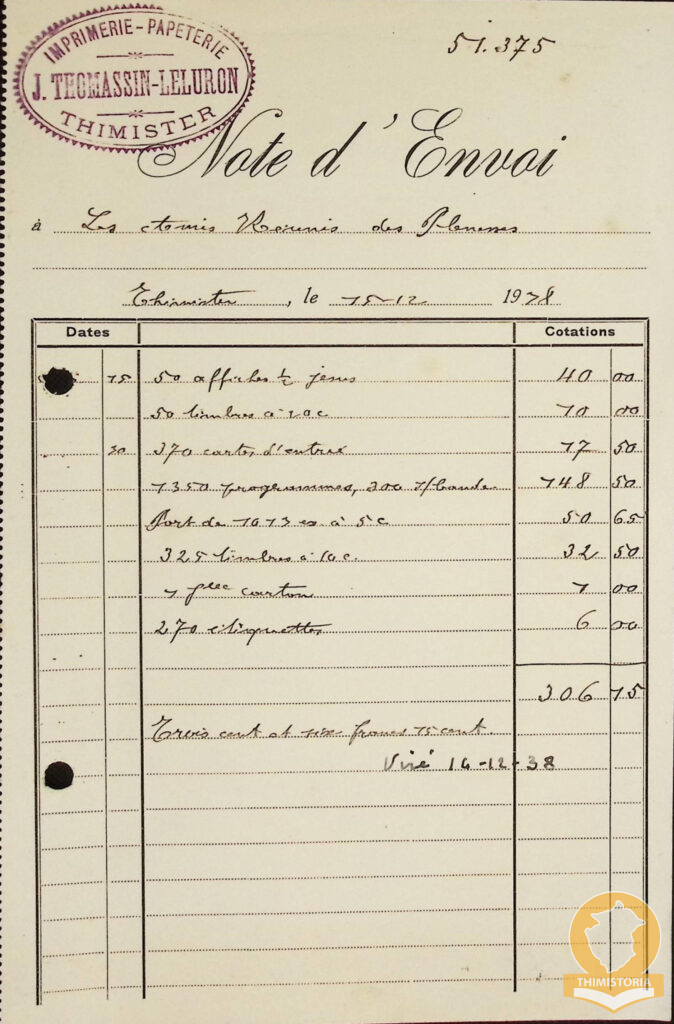 IMPRIMERIE-PAPETERIE
J. THOMASSIN-LELURON
THIMISTER
51.375
Note d'Envoi
à Les Amis Réunis des Plenesses
Thimister, le 15-12 1938
Dates Cotations
15 50 affiches ½ jésus 40 00
50 timbres à 20c 10 00
30 370 cartes d'entrée 17 50
1350 programmes, 300 s/bande 148 50
Port de 1013 ex à 5c 50 65
325 timbres à 10c. 32 50
1 flle carton 1 00
270 étiquettes 6 00
306 15
Trois cent et six francs 15 cent.
Viré 16-12-38
THIMISTORIA